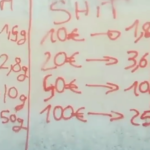 H SHIT
1,5g 10€ → 1,8
2,8g 20€ → 3,6
10g 50€ → 10
50g 100€ → 25